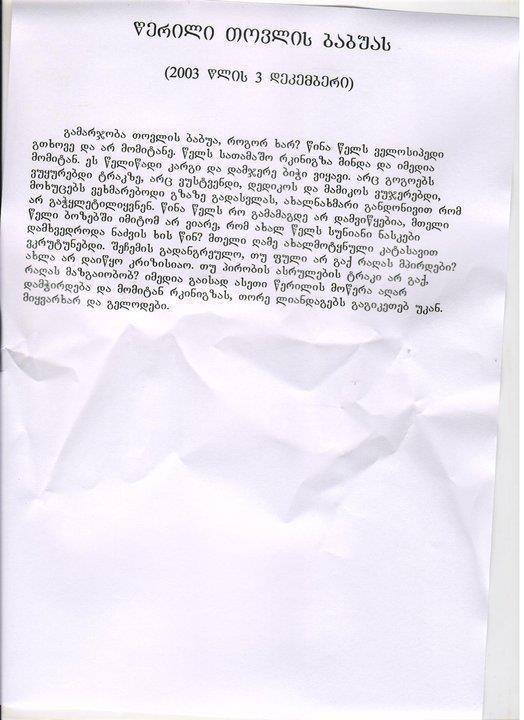 წერილი თოვლის ბაბუას
(2003 წლის 3 დეკემბერი)
გამარჯობა თოვლის ბაბუა, როგორ ხარ? წინა წელს ველოსიპედი
გთხოვე და არ მომიტანე. წელს სათამაშო რკინიგზა მინდა და იმედია
მომიტან. ეს წელიწადი კარგი და დამჯერე ბიჭი ვიყავი. არც გოგოებს
ვუყურებდი ტრაკზე, არც ვუსტვენდი, დედიკოს და მამიკოს ვუჯერებდი,
მოხუცებს ვეხმარებოდი გზაზე გადასვლას, ახალნახმარი განდონივით რომ
არ გაჭყლეტილიყვნენ. წინა წელს რო გამამაგდე არ დამვიწყებია, მთელი
წელი ბოზებში იმიტომ არ ვიარე, რომ ახალ წელს სუნიანი ნასკები
დამხვედროდა ნაძვის ხის წინ? მთელი დამე ახალმოტყნული კატასავით
ვკრუტუნებდი. შენემის გადანგრეულო, თუ ფული არ გაქ რაღას მპირდები?
ახლა არ დაიწყო კრიზისიაო. თუ პირობის ასრულების ტრაკი არ გაქ,
რაღას მაზგაიობობ? იმედია გაისად ასეთი წერილის მოწერა აღარ
დამჭირდება და მომიტან რკინიგზას, თორე ლიანდაგებს გაგიკეთებ უკან.
მიყვარხარ და გელოდები.